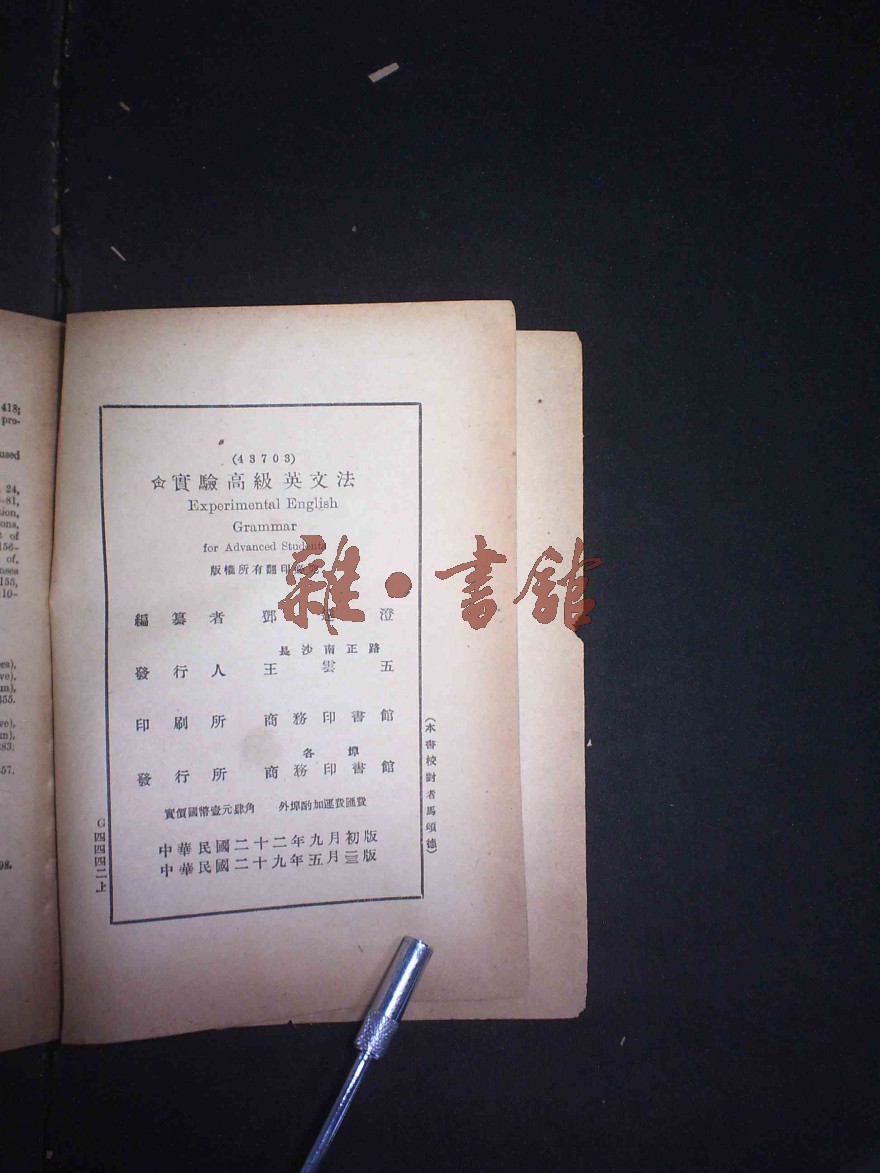 418;
pre-
used
24,
-81,
sion,
ons,
of
156-
of,
nses
155,
10-
355.
283;
357.
98.
(43703)
實驗高級英文法
Experimental English
Grammar
for Advanced Students
版權所有翻印必究
編纂者 鄧 澄
長沙南正路
發行人 王雲五
印刷所 商務印書館
各埠
發行所 商務印書館
實價國幣壹元肆角 外埠酌加運費匯費
中華民國二十二年九月初版
中華民國二十九年五月三版
(本書校對者馬頌德)
G四四四二上
雜·書館